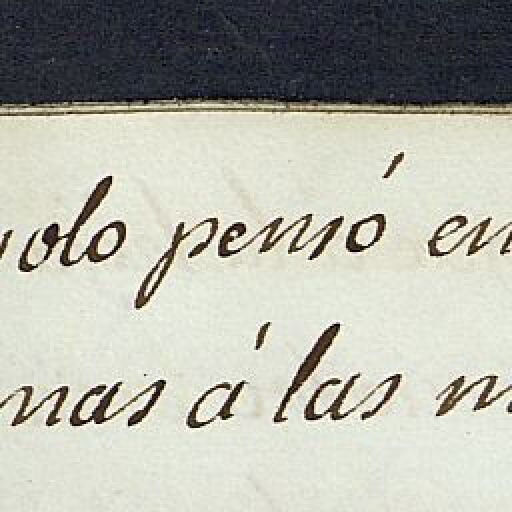 solo pensó en
mas á las m